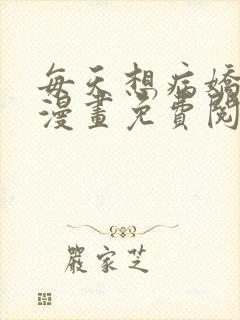 每天想病嬌
漫畫免費閱
嚴家芝